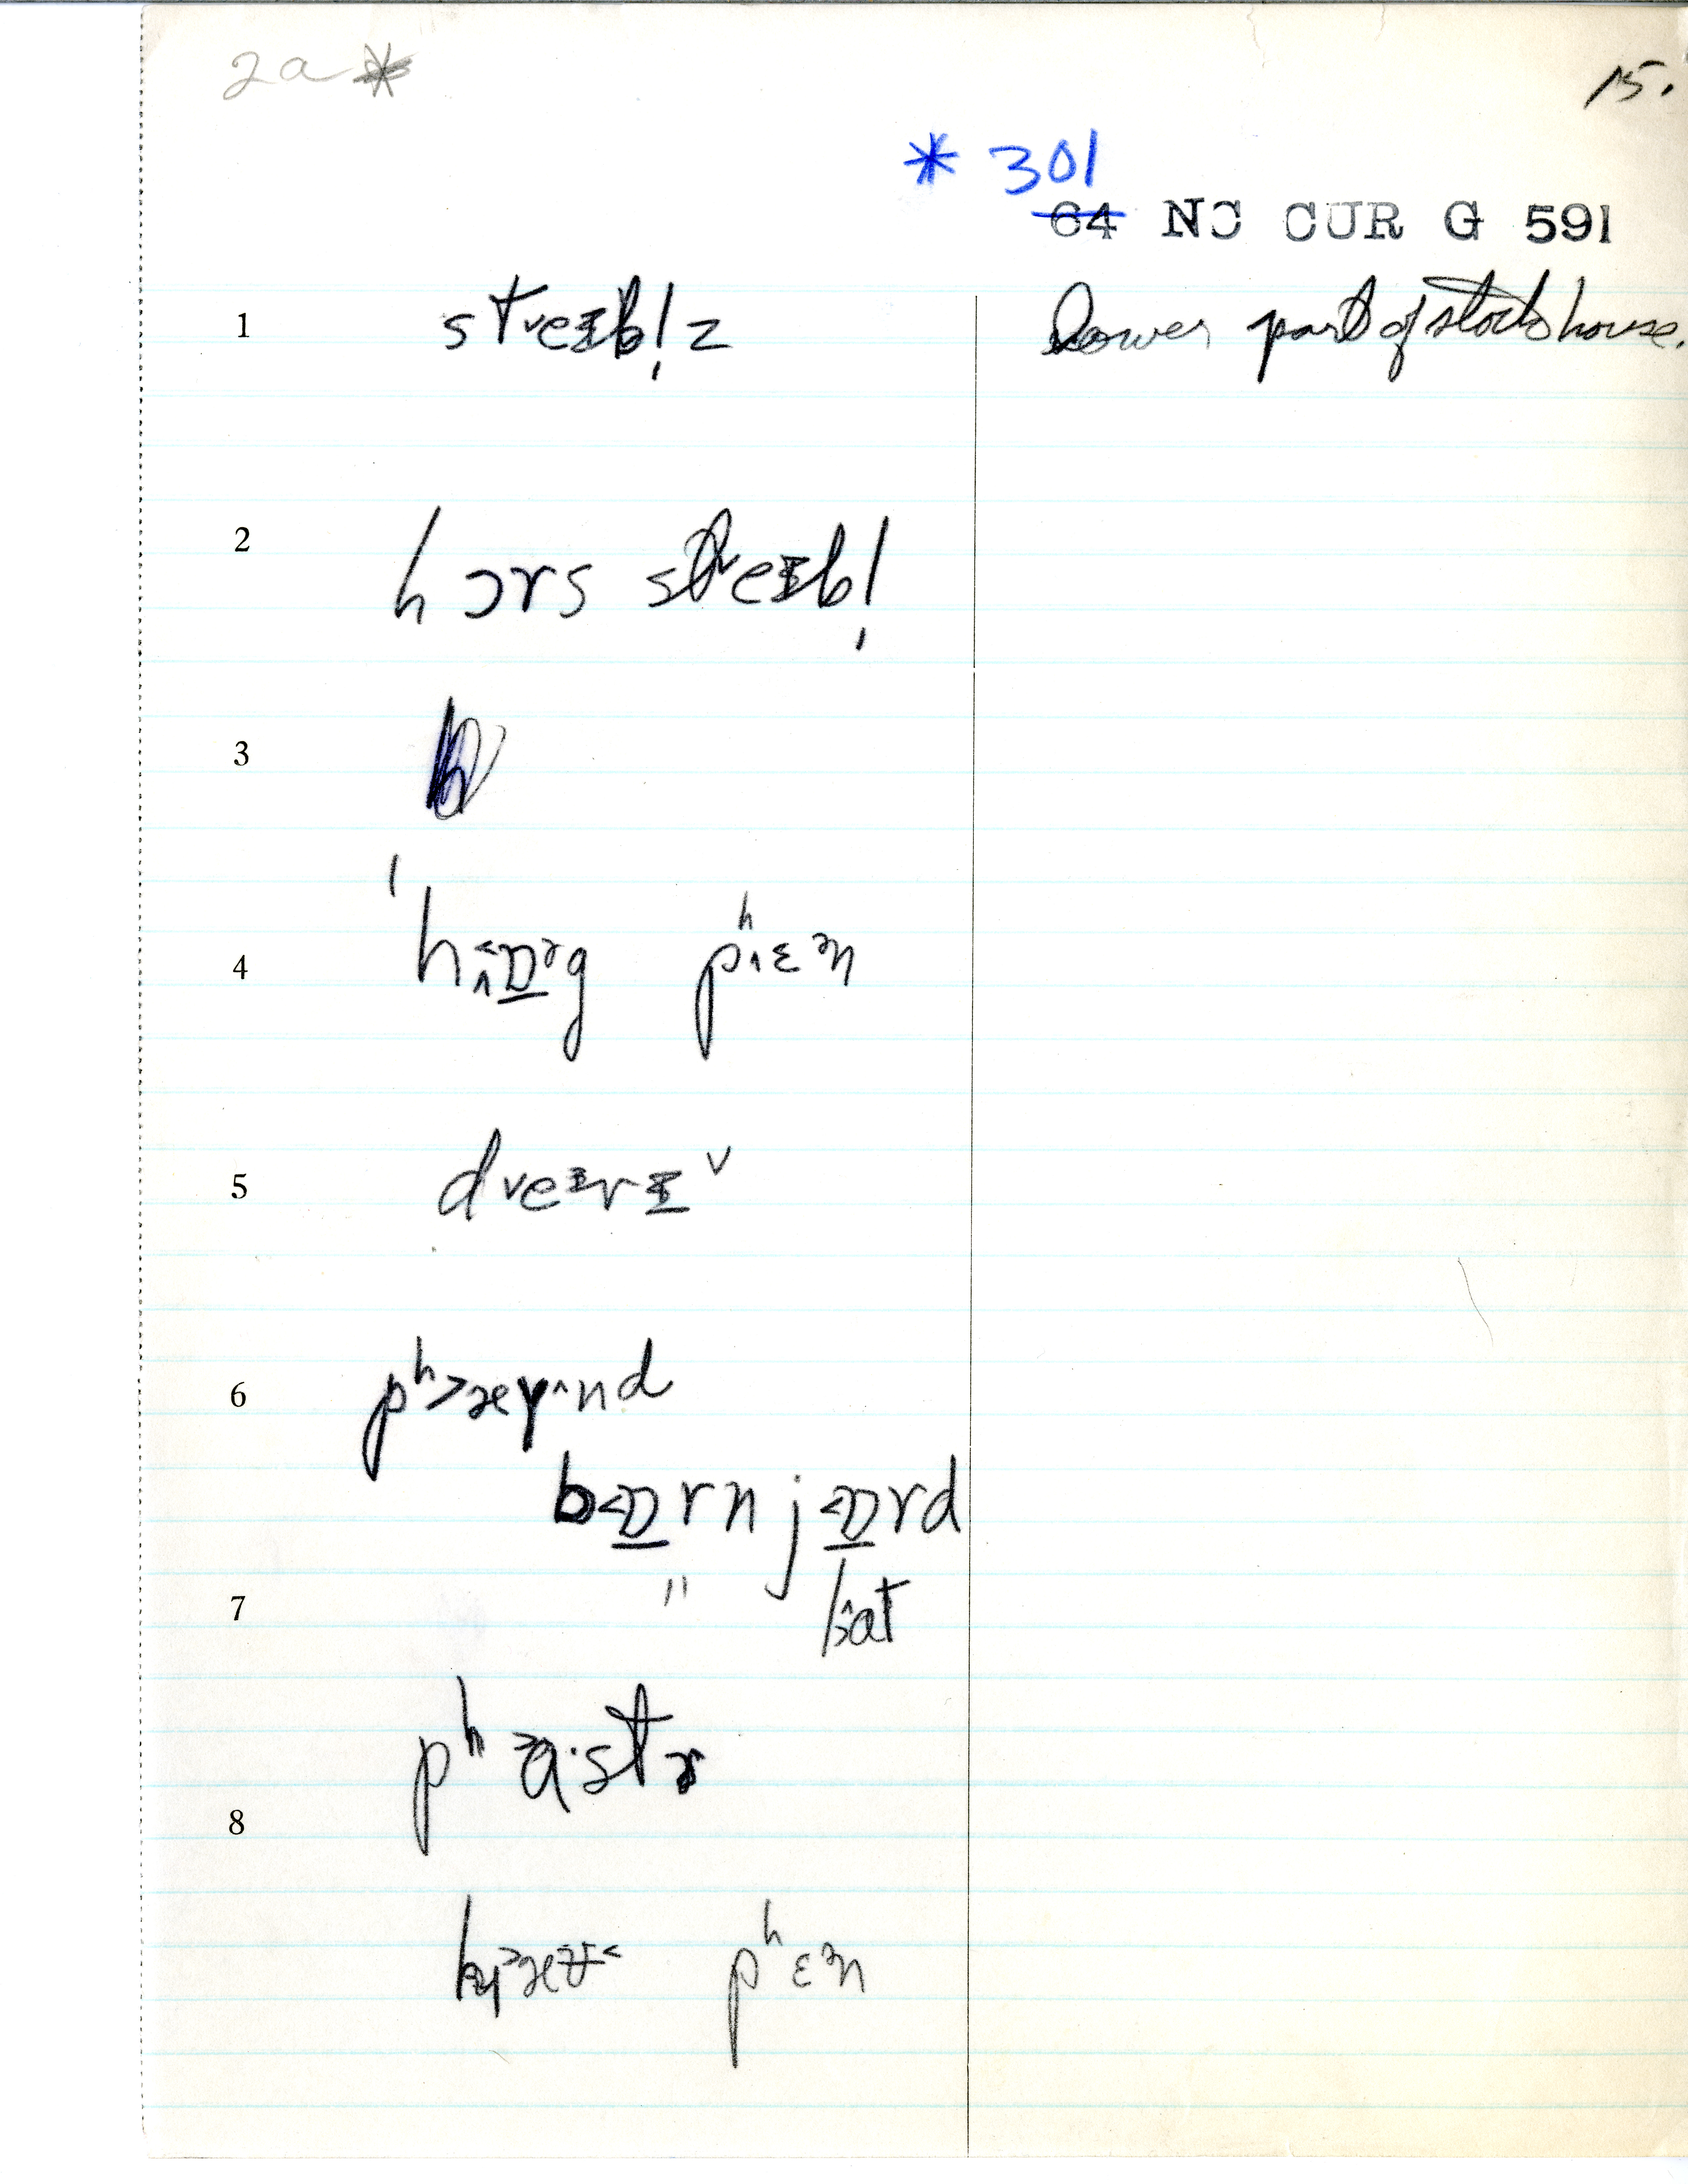 2a *
15.
* 301
64 NC CUR G 591
1 stᵛeᵻbl̩z Lower part of stock house.
2 hɔrs stᵛeᵻbl̩
3
4 ˈhɒ̱ᵊg pʰɛᵊn
5 dᵛeᵻrᵻ̱ᵛ
6 pʰ˃æɣ^nd
b˂ɒ̱rn j˂ɒ̱rd
7 " lat
pʰ˃a·stɚ
8
kæʊ˂ pʰɛᵊn